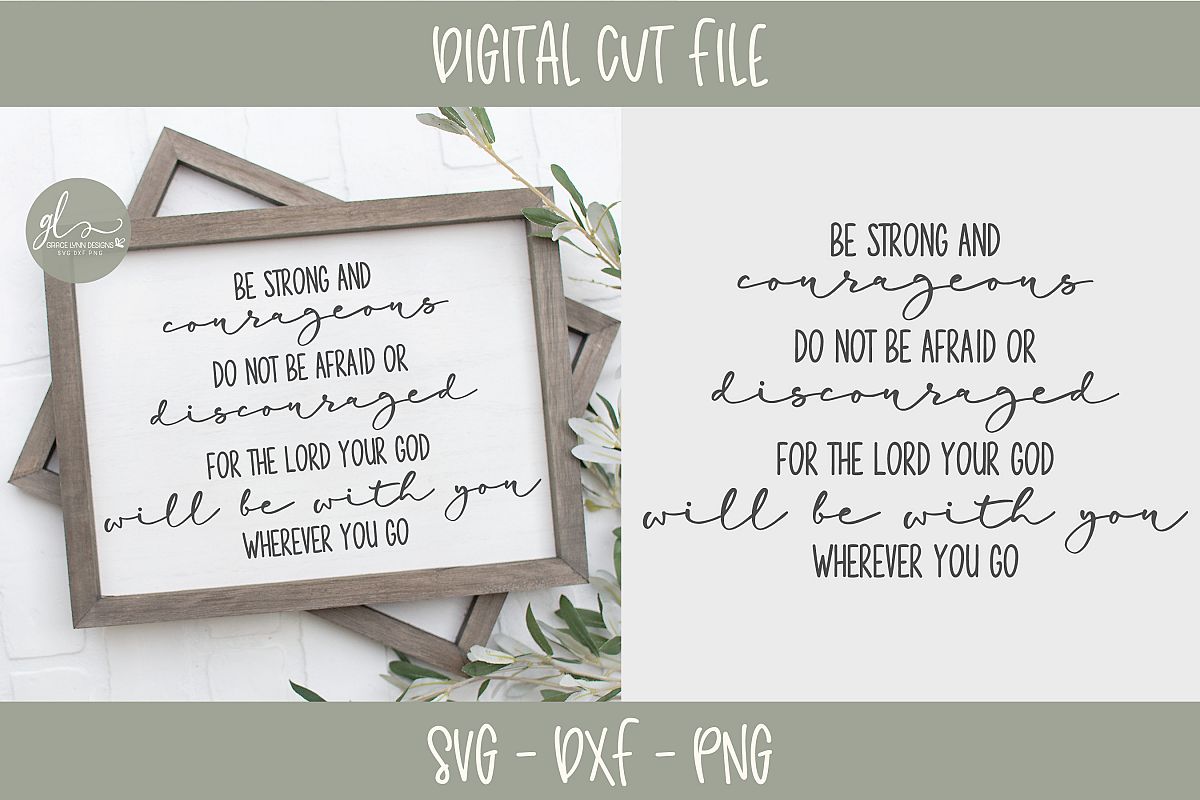 DIGITAL CUT FILE
gl
GRACE LYNN DESIGNS
SVG DXF PNG
BE STRONG AND
courageous
DO NOT BE AFRAID OR
discouraged
FOR THE LORD YOUR GOD
will be with you
WHEREVER YOU GO
BE STRONG AND
courageous
DO NOT BE AFRAID OR
discouraged
FOR THE LORD YOUR GOD
will be with you
WHEREVER YOU GO
SVG - DXF - PNG